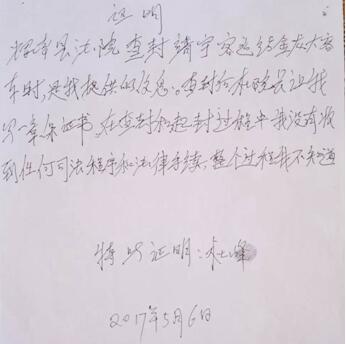 证明
辉南县法院查封靖宇客运站金龙大客
车时,是我提供的信息。查封后在院长让我
写一章保证书。在查封和起封过程中我没有收
到任何司法程序和法律手续,整个过程我不知道
特此证明:
2017年5月6日